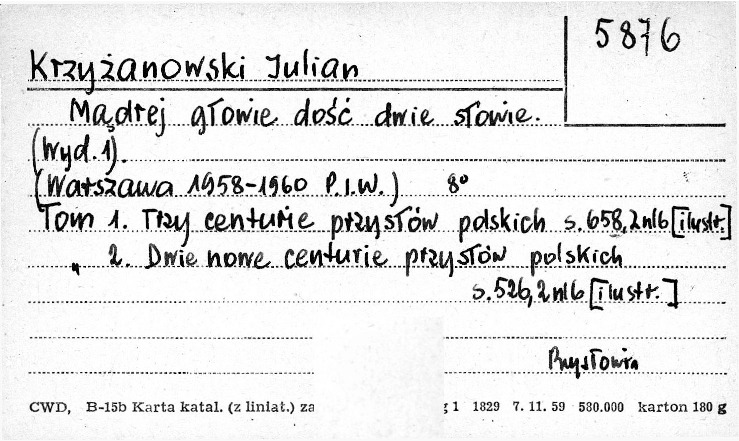 5876
Krzyżanowski Julian
Mądrej głowie dość dwie słowie.
(Wyd. 1).
(Warszawa 1958-1960 P.I.W.) 8°
Tom 1. Trzy centurie przysłów polskich s. 658, 2 nlb [ilustr.]
" 2. Dwie nowe centurie przysłów polskich
s. 526, 2 nlb [ilustr.]
Przysłowia
CWD, B-15b Karta katal. (z liniat.) za 1 1829 7. 11. 59 580.000 karton 180 g